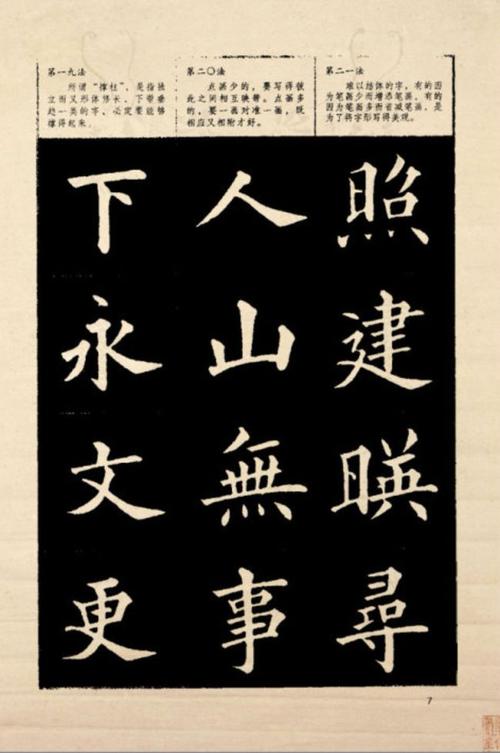 第一九法
所谓“撑柱”，是指独
立而又形体修长、下带垂
趋一类的字、必定要能够
撑得起来。
第二〇法
点画少的，要写得彼
此之间相互映带。点画多
的，要一画对准一画，既
相应又相附才好。
第二一法
难以结体的字，有的因
为笔画少而增添笔画，有的
因为笔画多而省减笔画，是
为了将字形写得美观。
下永文更
人山無事
照建暎尋
7